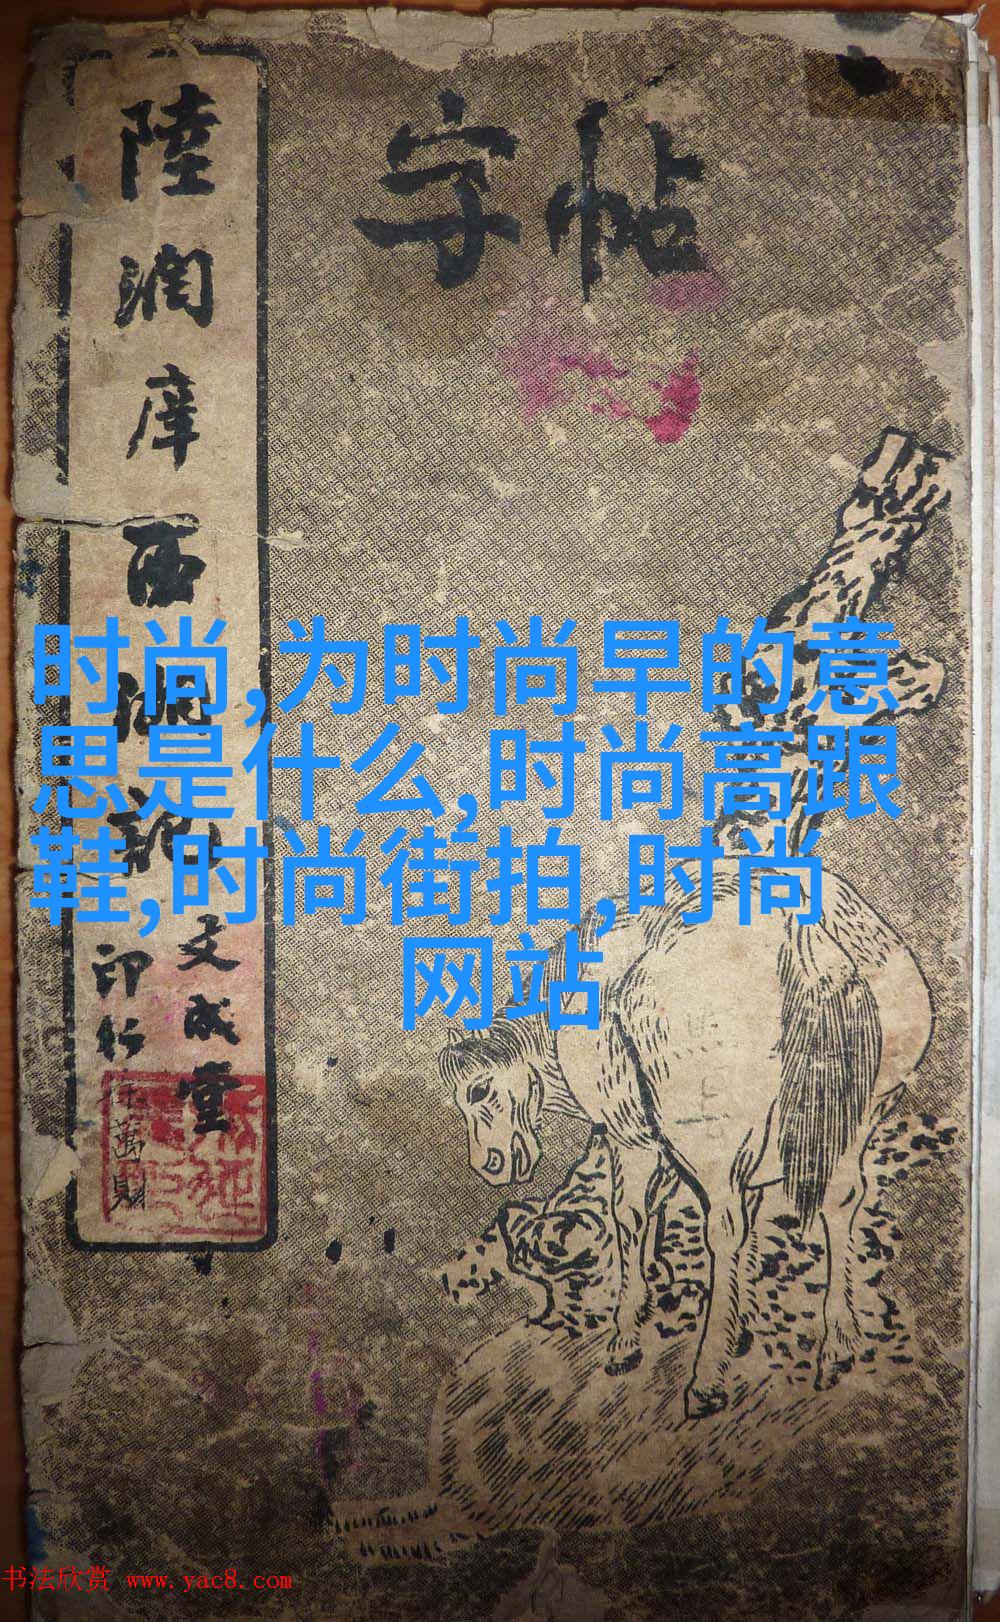 字帖
陸潤庠西湖記
文成堂
印行
徐萬財
时尚,为时尚早的意
思是什么,时尚高跟
鞋,时尚街拍,时尚
网站
书法欣赏 www.yac8.com